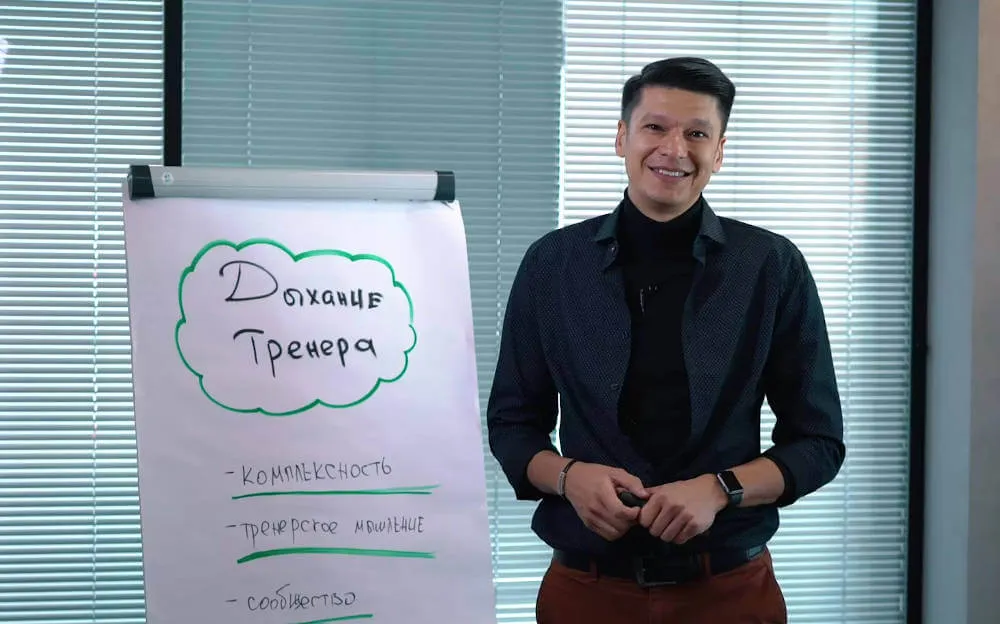 Дыхание
Тренера
- КОМПЛЕКСНОСТЬ
- ТРЕНЕРСКОЕ МЫШЛЕНИЕ
- СООБЩЕСТВО